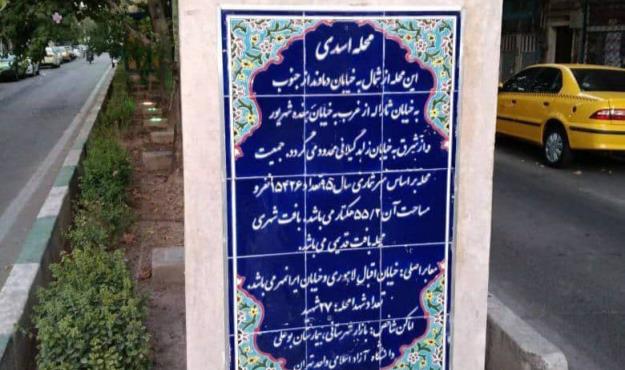 محله اسدی
این محله از شمال به خیابان دماوند از جنوب
به خیابان ثاراله از غرب به خیابان هفده شهریور
و از شرق به خیابان زاهد گیلانی محدود می گردد. جمعیت
محله بر اساس سرشماری سال ۹۵ تعداد ۱۵۴۲۶ نفر و
مساحت آن ۵۵/۲ هکتار می باشد. بافت شهری
محله بافت قدیمی می باشد.
معابر اصلی: خیابان اقبال لاهوری و خیابان ایرانمهر می باشد.
تعداد شهدا محله: ۲۷ شهید
اماکن شاخص: بازار شهرستانی، بیمارستان بوعلی
دانشگاه آزاد اسلامی واحد تهران